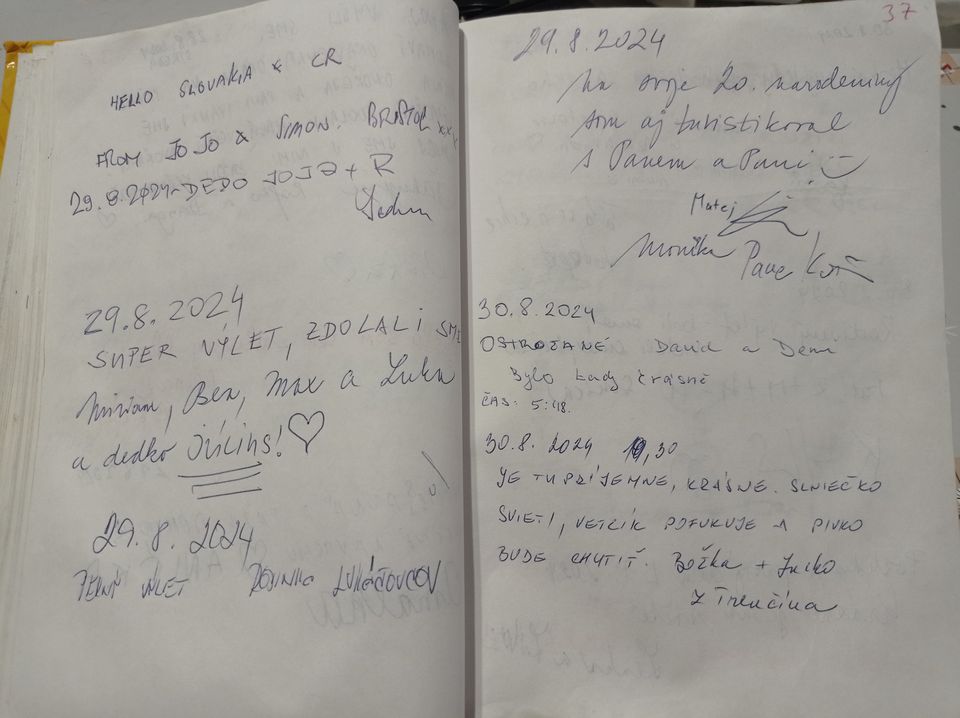 HELLO SLOVAKIA & CR
FROM JOJO & SIMON. BRISTOL xxx
29.8.2024 DEDO JOJO + R
29.8.2024
SUPER VÝLET, ZDOLALI SME
Miriam, Ben, Max a Luka
a dedko Július! ♡
29.8.2024
VÝLET RODINKA LUKÁČOVCOV
37
29.8.2024
Na svoje 20. narodeniny
som aj turistikoval
s Panem a Pani
Matej
Monika
30.8.2024
David a
Bylo tady krásně
ČAS: 5:48.
30.8.2024 ,30
JE TU PRÍJEMNE, KRÁSNE. SLNIEČKO
SVIETI, VETRÍK POFUKUJE A PIVKO
BUDE CHUTIŤ. Božka + Jucko
z Trenčína